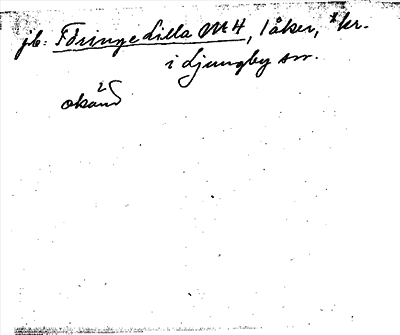 jb: Föringe Lilla M 4, 1 åker, *kr.
i Ljungby sn.
okänd